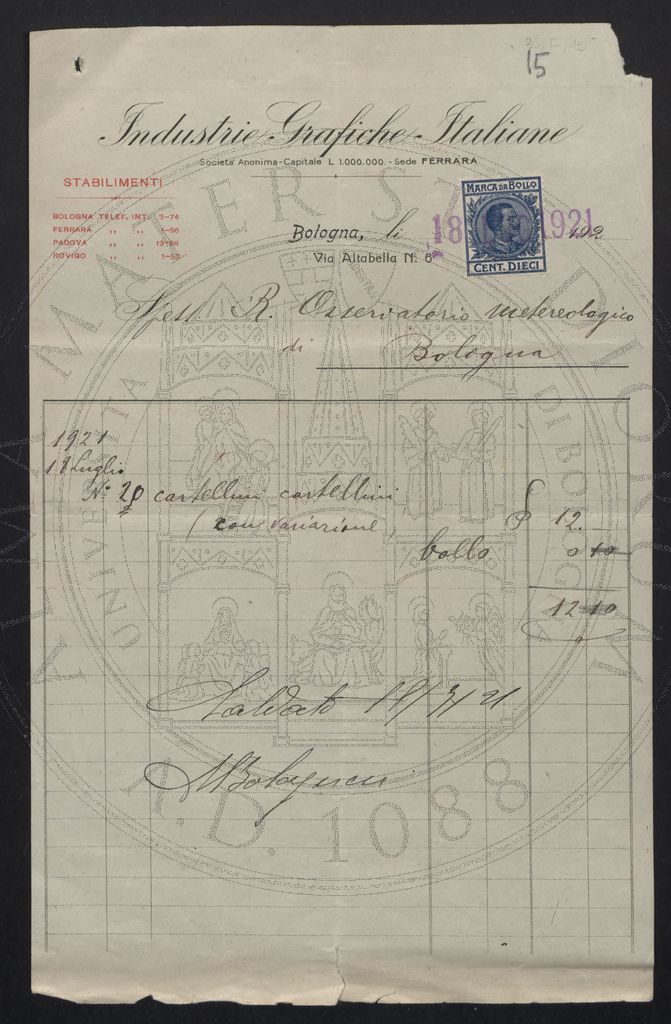 15
Industrie Grafiche Italiane
Società Anonima - Capitale L. 1.000.000 - Sede FERRARA
STABILIMENTI
BOLOGNA TELEF. INT. 3-74
FERRARA " " 1-56
PADOVA " "
ROVIGO " "
MARCA DA BOLLO
CENT. DIECI
Bologna, li 18 1921 192
Via Altabella N. 6
Spett. R. Osservatorio metereologico
di Bologna
1921
18 Luglio
N° 20 cartellini cartellini
(con variazione) £ 12.
bollo 0 10
12 10
Saldato 18/7/21
ALMA MATER STUDIORUM
UNIVERSITÀ DI BOLOGNA
A.D. 1088